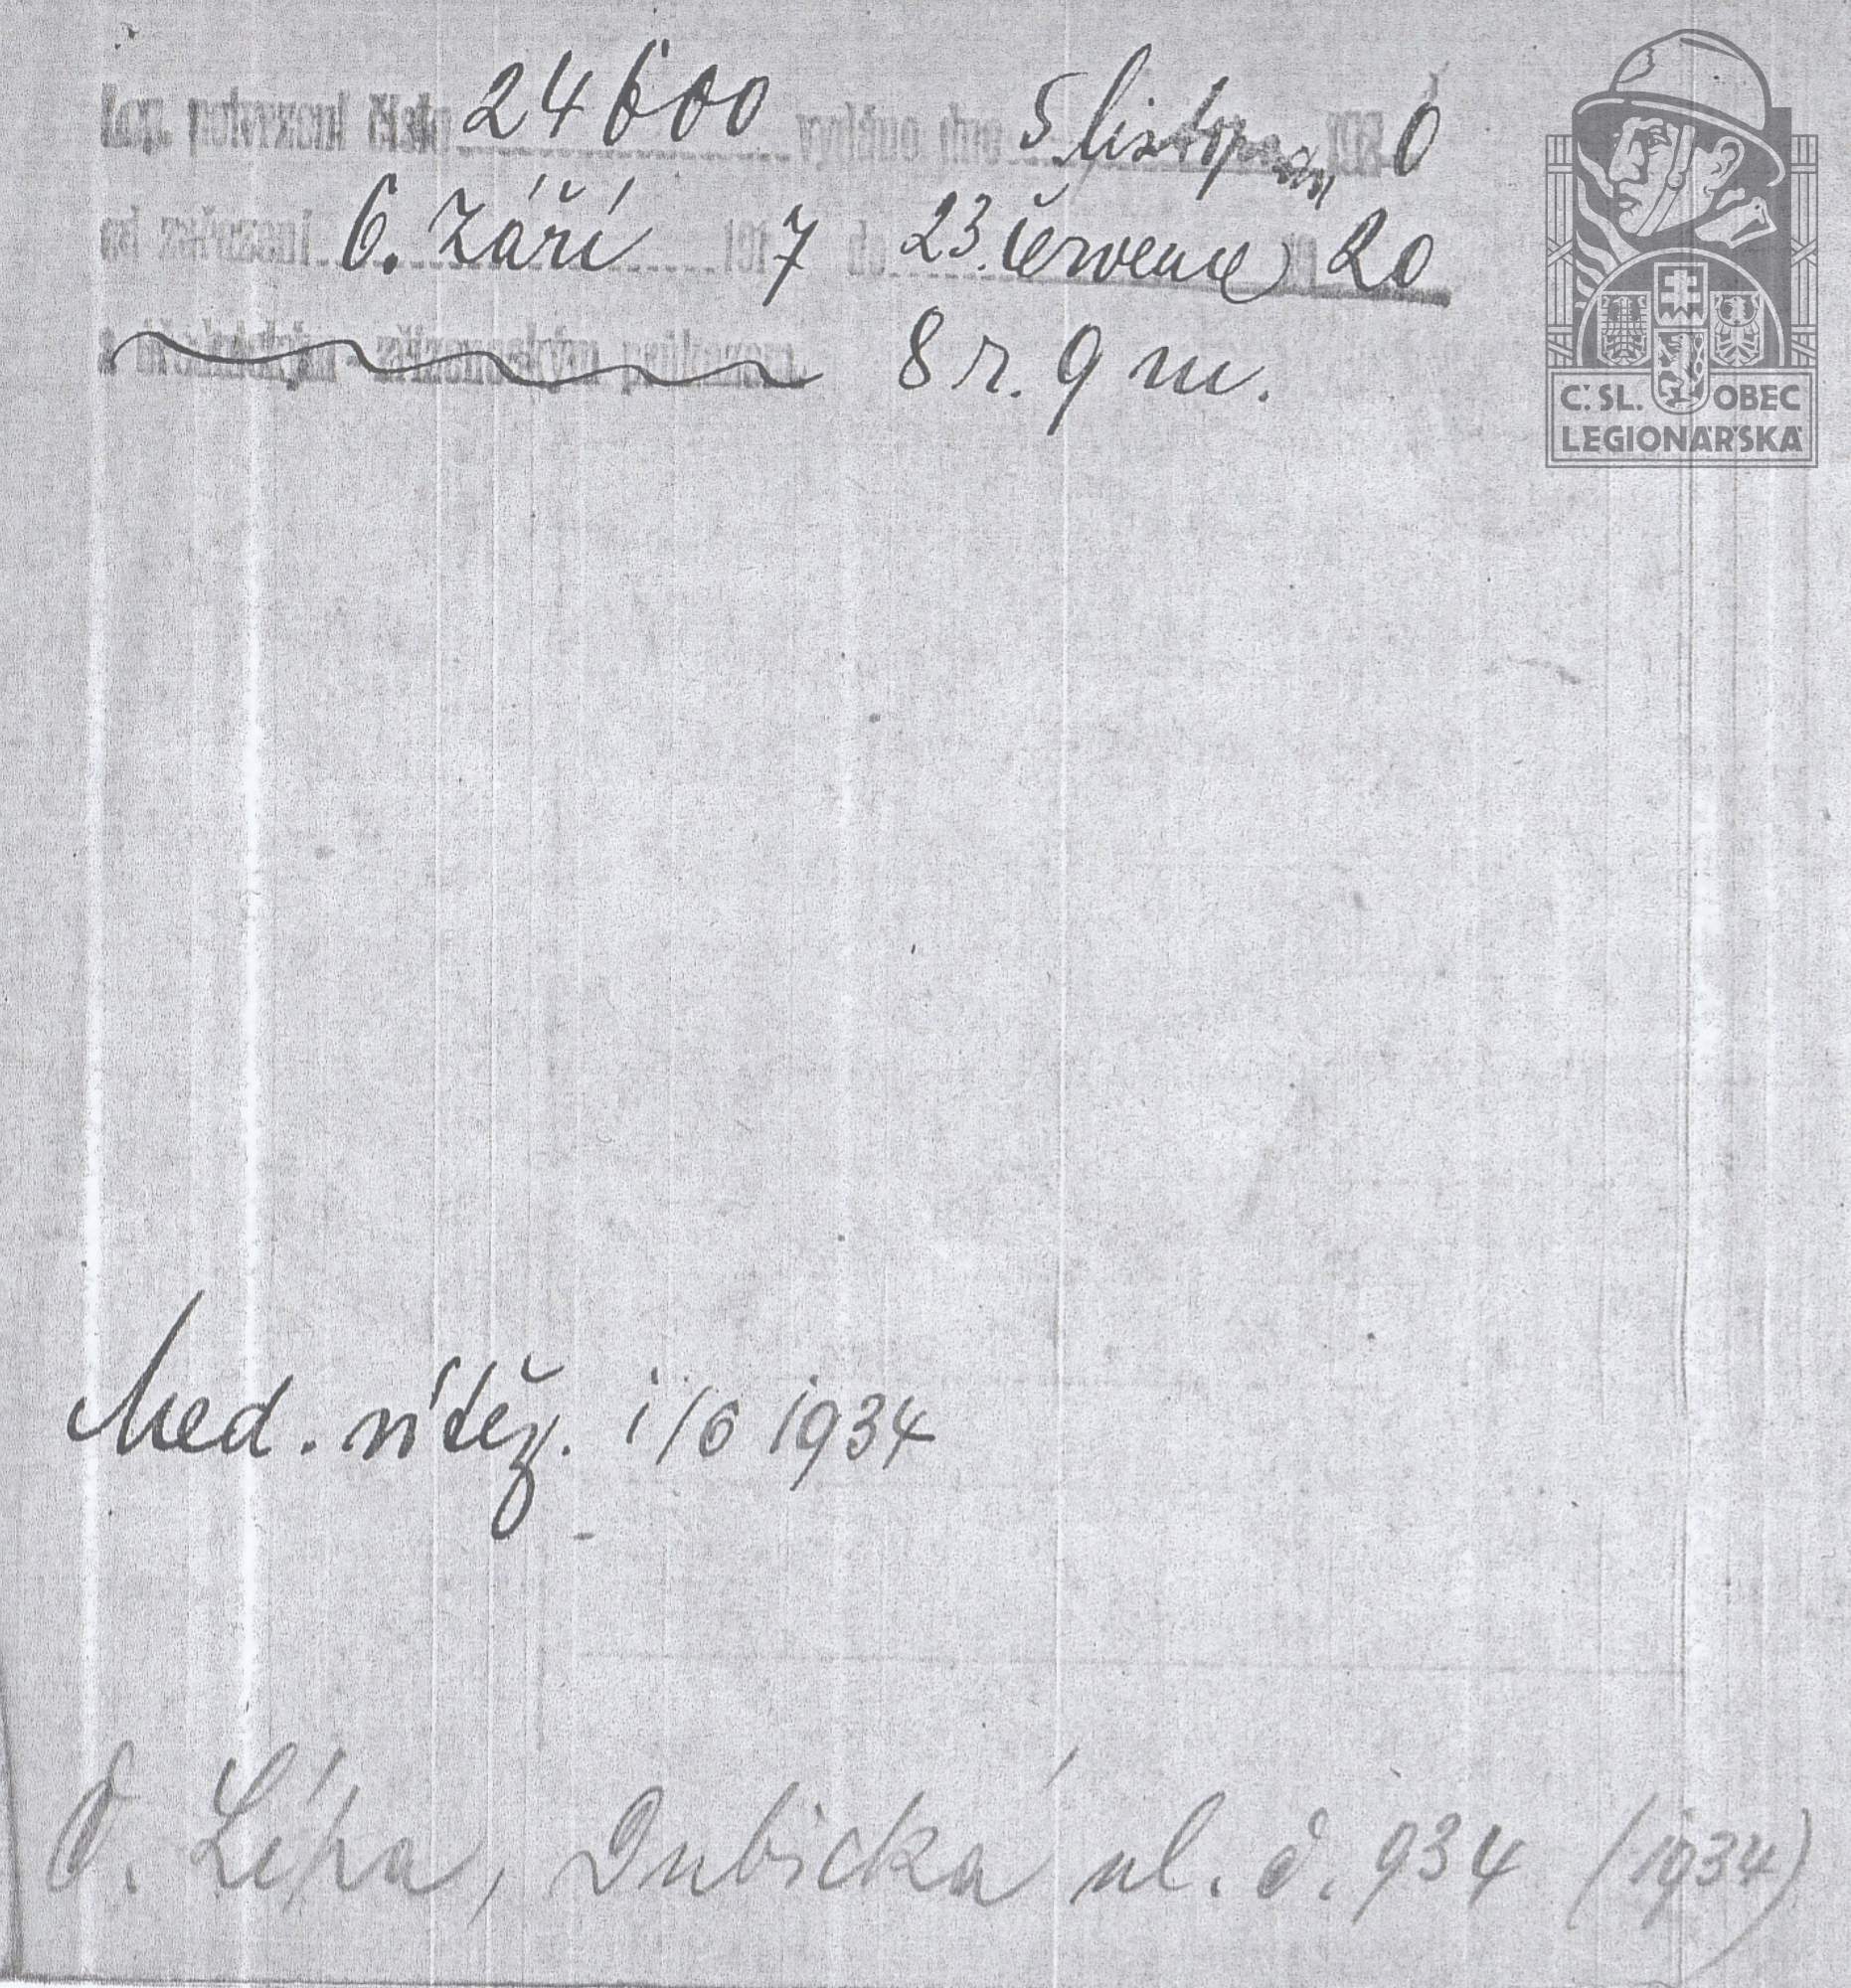 Leg. potvrzení číslo 24600 vydáno dne 5 listopadu 192 0
od zařazení 6. září 191 7 do 23. července 20
8 r. 9 m.
Č. SL. OBEC
LEGIONÁŘSKÁ
Med. vítěz. 1/6 1934
Č. Lípa, Dubická ul. č. 934 (1934)